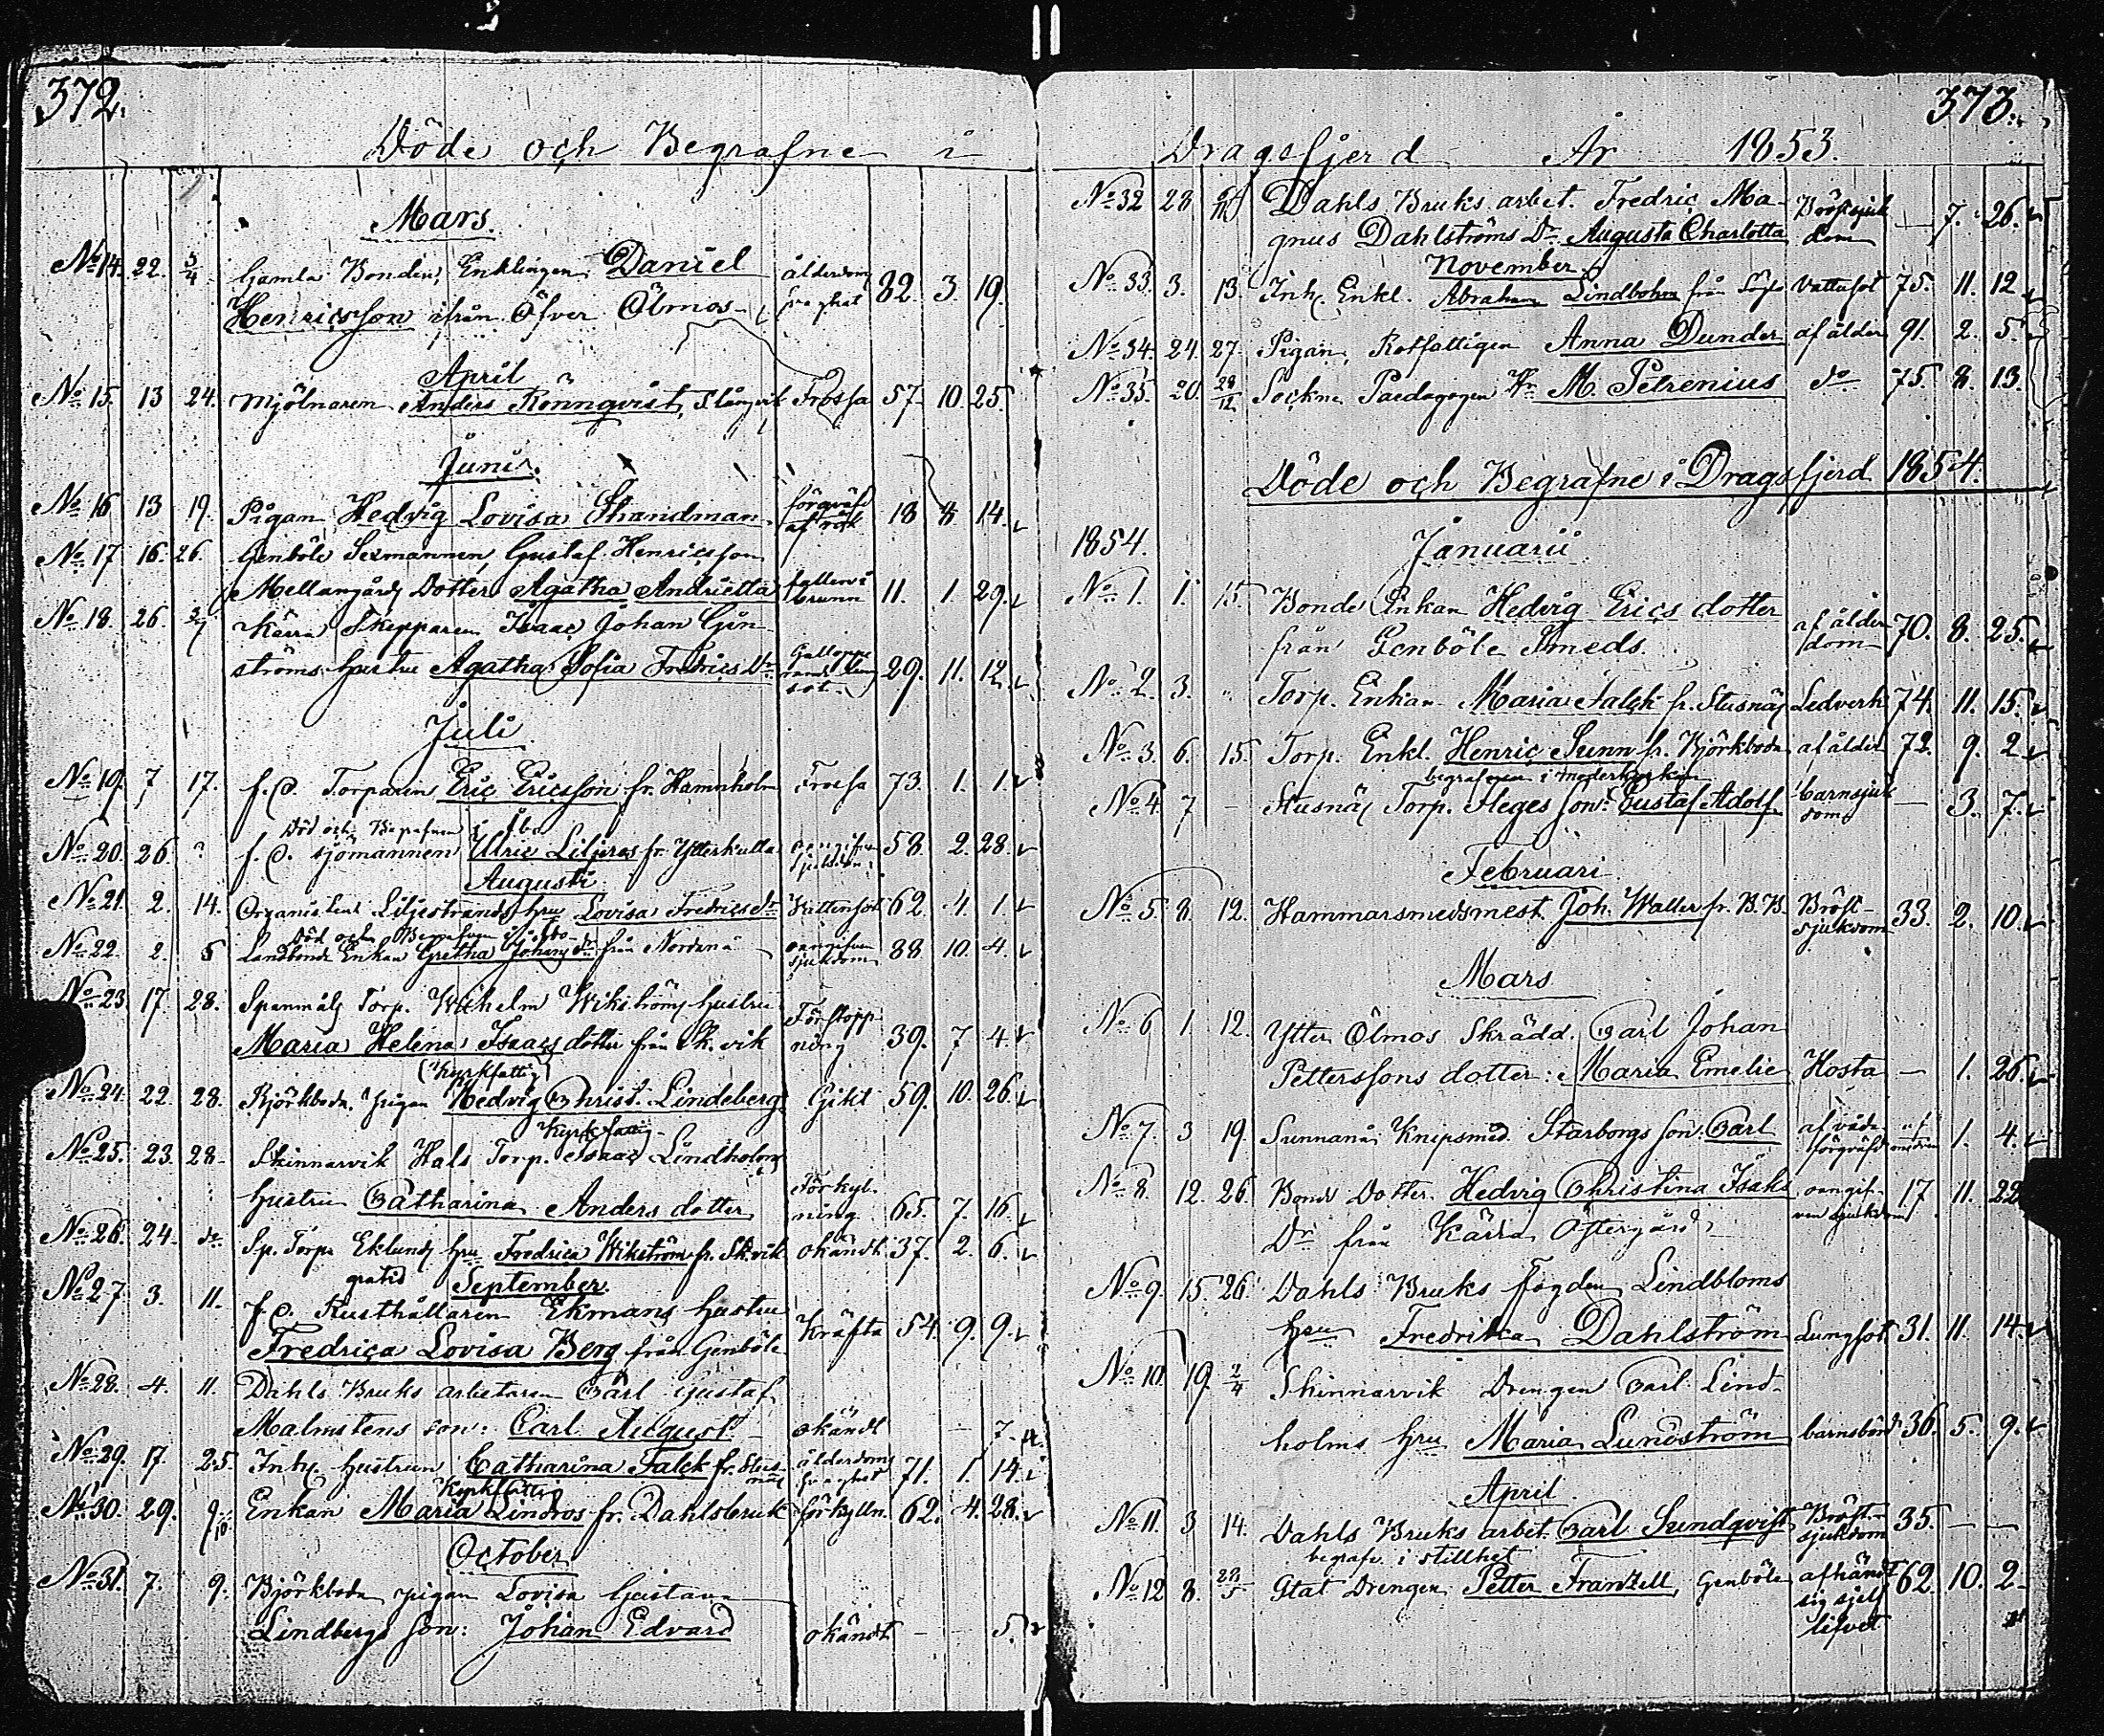 372.
Döde och Begrafne i
Mars.
No 14. 22. 3/4 Gamla Bonden, Enklingen Daniel ålderdoms
Henricsson ifrån Öfver Ölmos svaghet 82. 3. 19.
April
No 15. 13 24. Mjölnaren Anders Rönnqvist, Frossa 57. 10. 25.
Junii.
No 16 13 19. Pigan Hedvig Lovisa Strandman förgiftad af rök 18 8 14.
No 17 16. 26. Genböle Sexmannen, Gustaf Henricsson
Mellangårds Dotter Agatha Andrietta fallen i brunn 11. 1. 29.
No 18. 26. 3/7 Kärra Skepparen Isaac Johan Gin
ströms hustru Agatha Sofia Fredrics Dr Galopperande lungsot 29. 11. 12.
Juli
No 19. 7 17. f.d. Torparen Eric Ericsson fr. Hamnholm Frossa 73. 1. 1.
Död och Begrafven i Åbo
No 20. 26. ? f.d. sjömannen Ulric Liljeros fr. Ytterkulla oangifven sjukdom 58. 2. 28.
Augusti
No 21. 2. 14. Organisten Liljestrands hru Lovisa Fredrics Dr Vattensot 62. 4. 1.
Död och Begrafven i Åbo
No 22. 2. 5 Landbonde Enkan Gretha Johans dr från Nordanå oangifven sjukdom 88. 10. 4.
No 23. 17. 28. Spanmåls Torp. Wilhelm Wikströms hustru
Maria Helena Isaacs dotter från Sk.vik Förstoppning 39. 7 4
(Kyrkfattig)
No 24. 22. 28. Björkboda Pigan Hedvig Christ. Lindeberg Gikt 59. 10. 26.
Kyrkfattig
No 25. 23. 28. Skinnarvik Hals Torp. Isaac Lindholms
hustru Catharina Anders dotter Förkylning 65. 7. 16.
No 26. 24. do Sp. Torp. Eklunds hru Fredrica Wikström fr. Sk.vik okändt 37. 2. 6.
gratis September.
No 27 3. 11. f.d. Rusthållaren Ekmans hustru
Fredrica Lovisa Berg från Genböle Kräfta 54. 9. 9.
No 28. 4. 11. Dahls Bruks arbetaren Carl Gustaf
Malmstens son: Carl August okändt — 7.
No 29. 17. 25. Inhy. hustrun Catharina Falck fr. Stusnäs ålderdoms svaghet 71. 1. 14.
Kyrkfattig
No 30. 29. 9/10 Enkan Maria Lindros fr. Dahlsbruk förkyln. 62. 4. 28.
October
No 31. 7. 9. Björkboda pigan Lovisa Gustava
Lindbergs son: Johan Edvard okändt — 5.
373.
Dragsfjerd År 1853.
No 32 28 6/11 Dahls Bruks arbet. Fredric Ma-
gnus Dahlströms Dr Augusta Charlotta Bröstsjukdom — 7. 26.
November
No 33. 3. 13. Inh. Enkl. Abraham Lindbohm från Vattusot 75. 11. 12
No 34. 24. 27. Pigan, Rotfattigen Anna Dunder af ålder 91. 2. 5.
No 35. 20. 28/12 Sockne Paedagogen Hr M. Petrenius do 75. 8. 13.
Döde och Begrafne i Dragsfjerd 1854.
1854. Januarii
No 1. 1. 15. Bonde Enkan Hedvig Erics dotter
från Genböle Smeds. af ålderdom 70. 8. 25.
No 2. 3. " Torp. Enkan Maria Falck fr. Stusnäs Ledverk 74. 11. 15.
No 3. 6. 15. Torp. Enkl. Henric Sunn fr. Björkboda af ålder 72. 9. 2
begrafven i moderkyrkan
No 4. 7 — Stusnäs Torp. Heges son: Gustaf Adolf barnsjukdom — 3. 7.
Februari
No 5. 8. 12. Hammarsmedsmest. Joh. Waller fr. B.B. Bröstsjukdom 33. 2. 10.
Mars
No 6 1 12. Ytter Ölmos Skrädd. Carl Johan
Petterssons dotter: Maria Emelie Hosta — 1. 26.
No 7. 3 19. Sunnanå Knipsmed. Starborgs son Carl af våda förqväfd af modren 1. 4.
No 8. 12. 26. Bonde Dotter Hedvig Christina Isaks oangifven sjukdom 17 11. 22
Dr från Kärra Östergård
No 9. 15. 26. Dahls Bruks fogden Lindbloms
hru Fredrika Dahlström Lungsot 31. 11. 14.
No 10. 19. 2/4 Skinnarvik Drengen Carl Lind-
holms hru Maria Lundström barnsbörd 36. 5. 9.
April
No 11. 3 14. Dahls Bruks arbet. Carl Sundqvist Bröstsjukdom 35. — —
begrafv. i stillhet
No 12 8. 28/5 Stat Drengen Petter Franzell, Genböle afhändt sig sjelf lifvet 62. 10. 2.